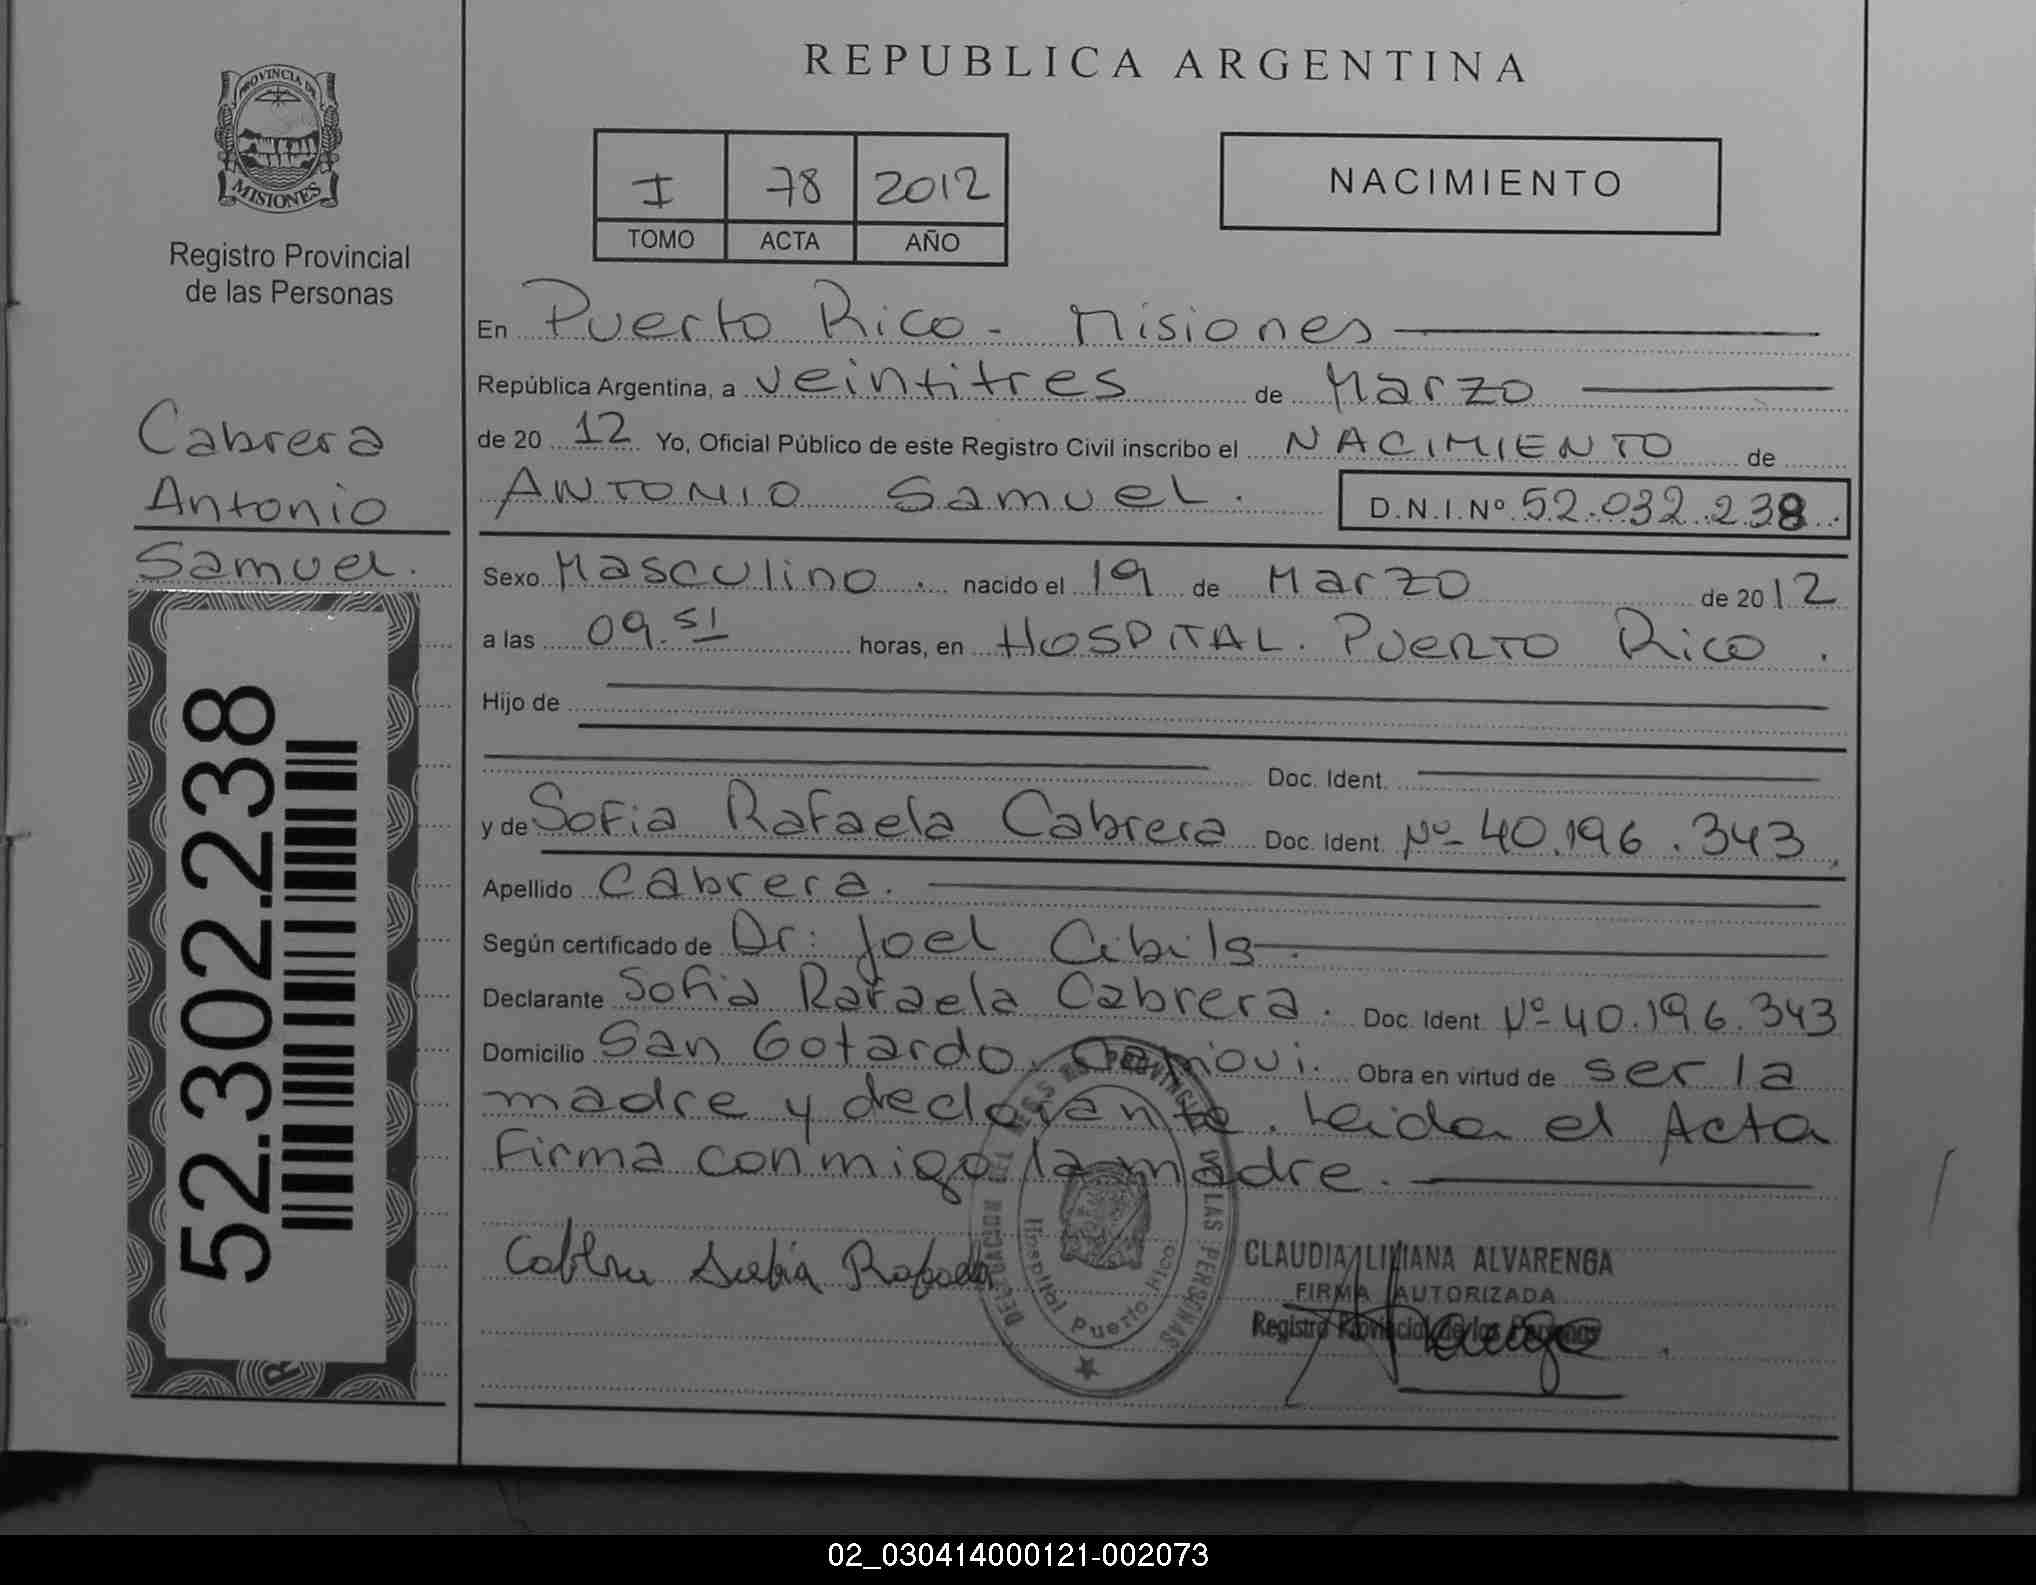 REPUBLICA ARGENTINA
PROVINCIA DE
MISIONES
Registro Provincial
de las Personas
I 78 2012
TOMO ACTA AÑO
NACIMIENTO
En Puerto Rico - Misiones
República Argentina, a veintitres de Marzo
de 20 12 Yo, Oficial Público de este Registro Civil inscribo el NACIMIENTO de
ANTONIO Samuel. D.N.I.Nº 52.032.238
Cabrera
Antonio
Samuel.
52.302.238
Sexo Masculino. nacido el 19 de Marzo de 20 12
a las 09.51 horas, en HOSPITAL. Puerto Rico.
Hijo de
Doc. Ident.
y de Sofia Rafaela Cabrera Doc. Ident. Nº 40.196.343,
Apellido Cabrera.
Según certificado de Dr: Joel Cibils.
Declarante Sofia Rafaela Cabrera. Doc. Ident Nº 40.196.343
Domicilio San Gotardo. Obra en virtud de ser la
madre y declarante. Leida el Acta
Firma conmigo la madre.
Rafaela
DELEGACION DEL REG. PROVINCIAL DE LAS PERSONAS
Hospital Puerto Rico
CLAUDIA LILIANA ALVARENGA
FIRMA AUTORIZADA
Registro Provincial de las Personas
02_030414000121-002073